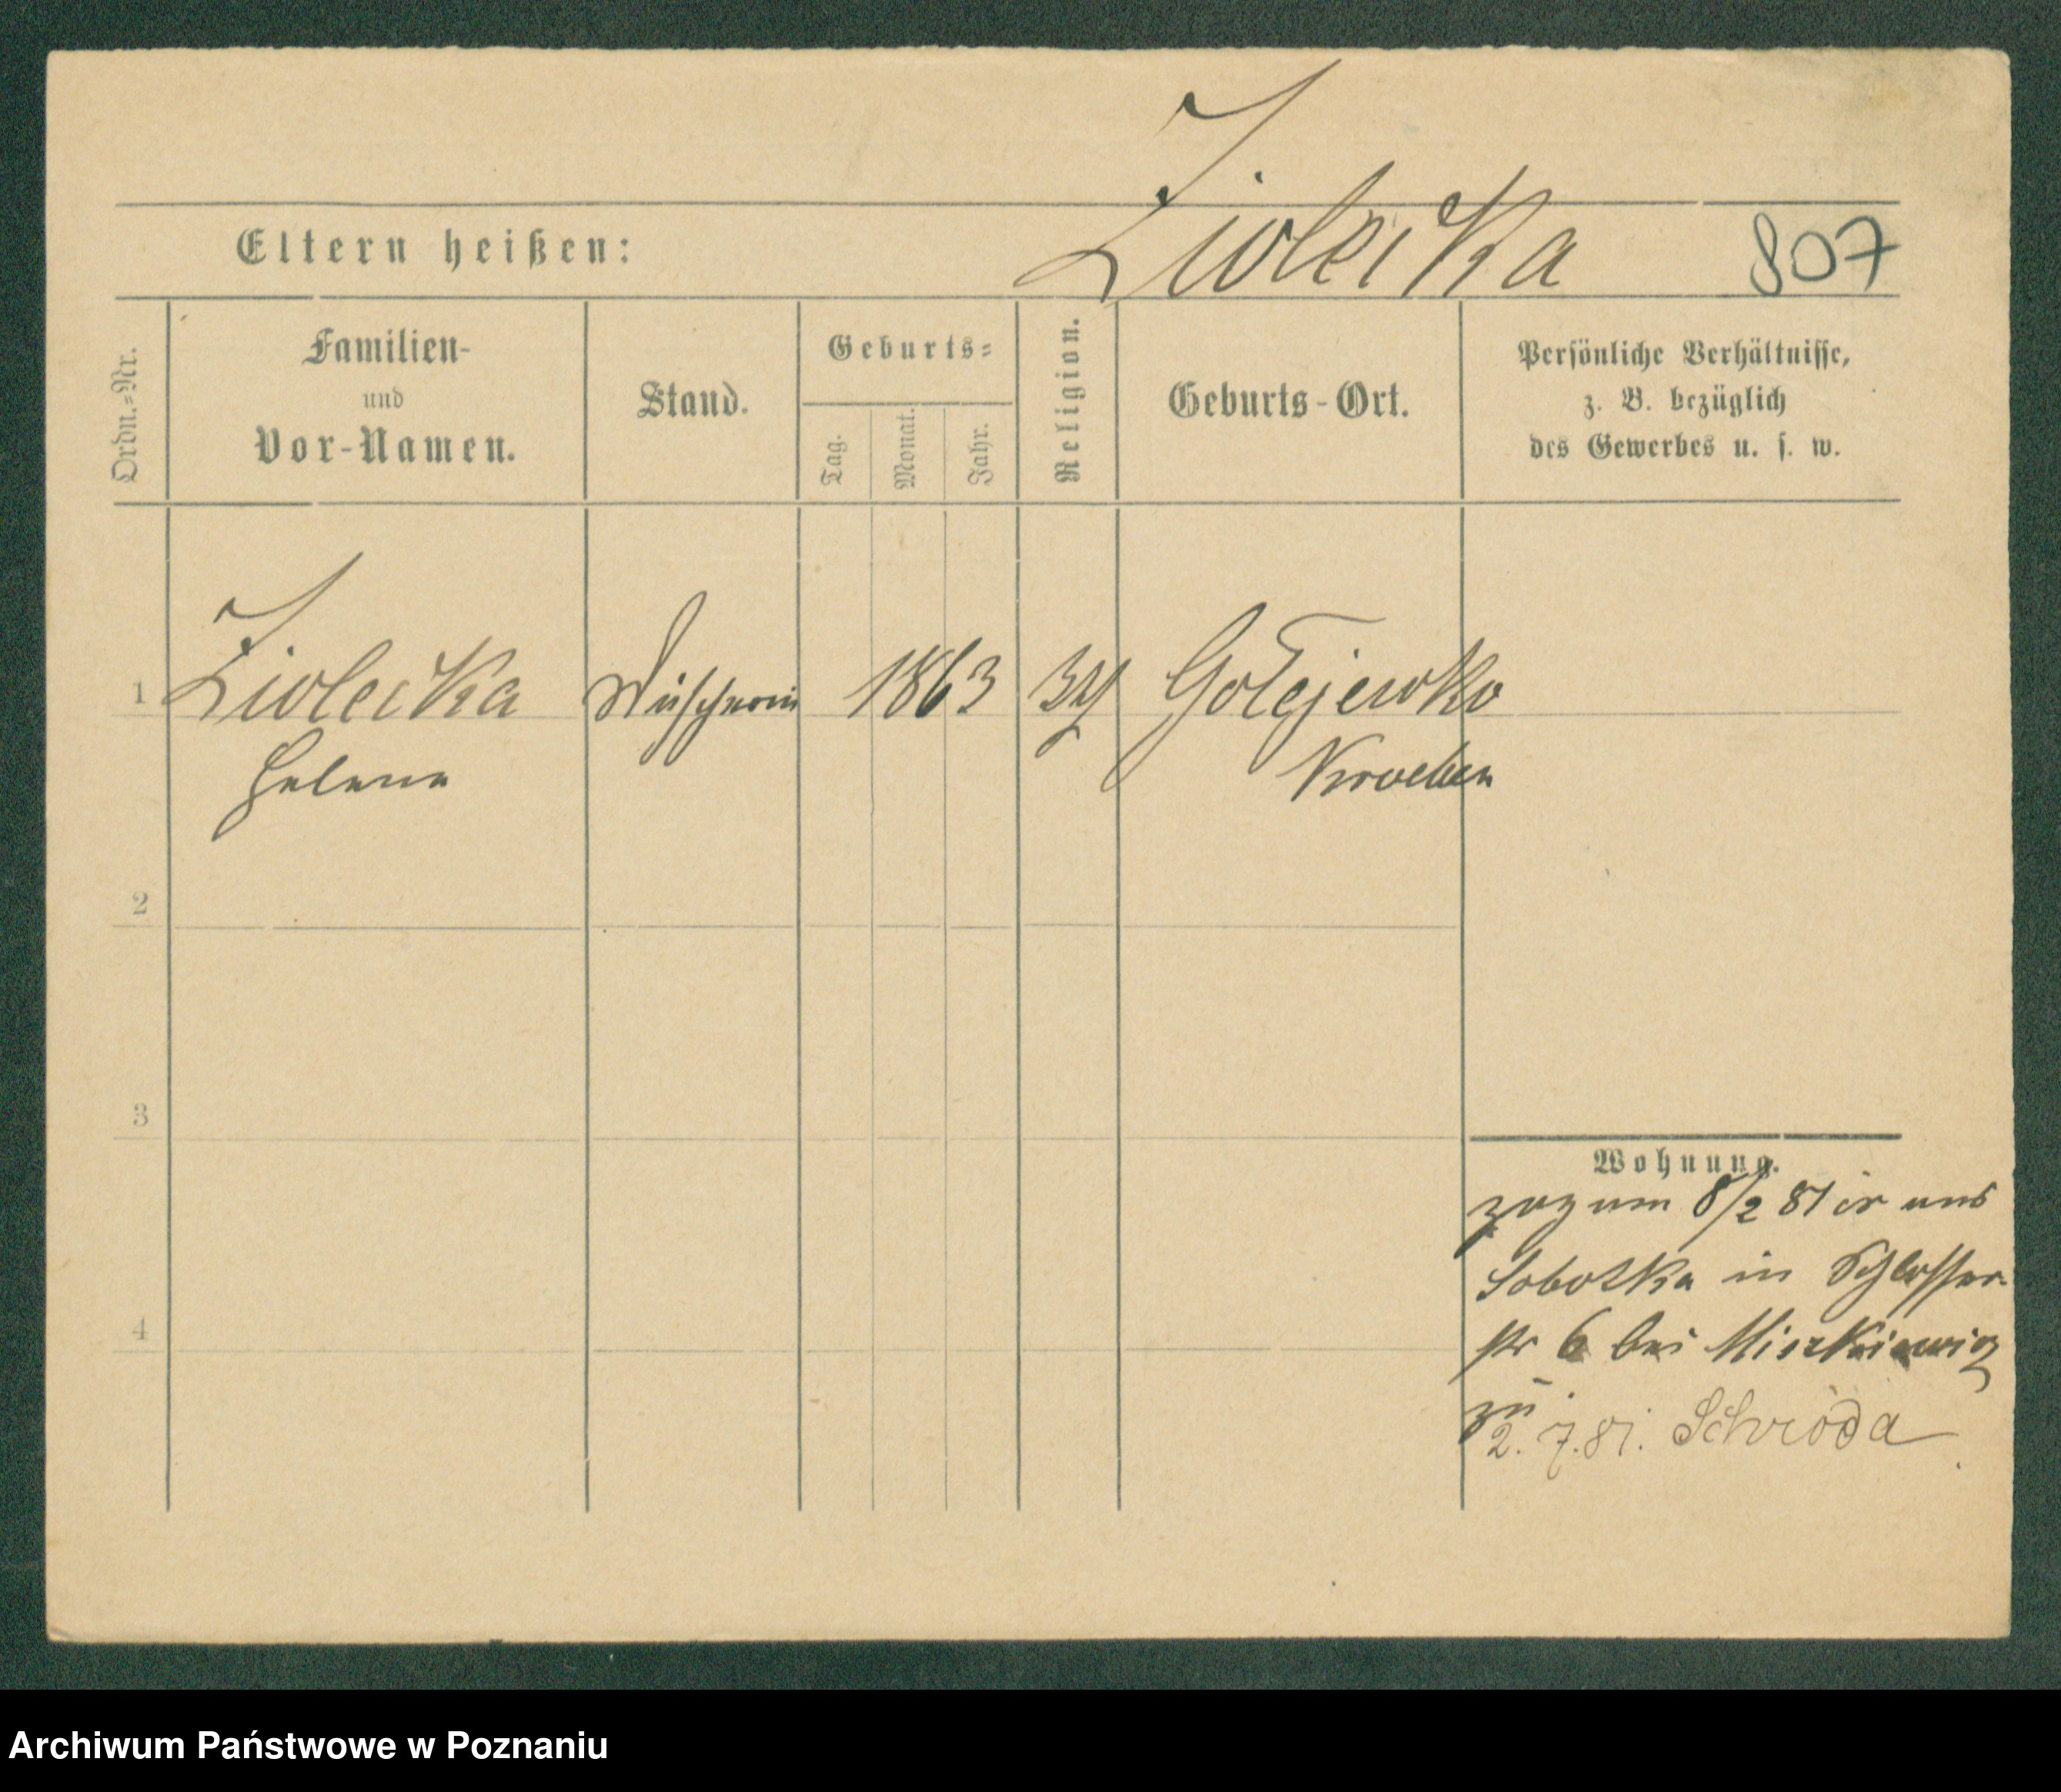 Ziolecka
Eltern heißen:
807
Ordn.=Nr.
Familien-
und
Vor-Namen.
Stand.
Geburts=
Tag.
Monat.
Jahr.
Religion.
Geburts-Ort.
Persönliche Verhältnisse,
z. B. bezüglich
des Gewerbes u. s. w.
1 Ziolecka 1863 Golejewko
Helena Kroeben
2
3
4
Wohnung.
zog am 8/2 81 aus
Sobotka in Schlosser-
str 6 bei
zu
2. 7. 81. Schroda
Archiwum Państwowe w Poznaniu